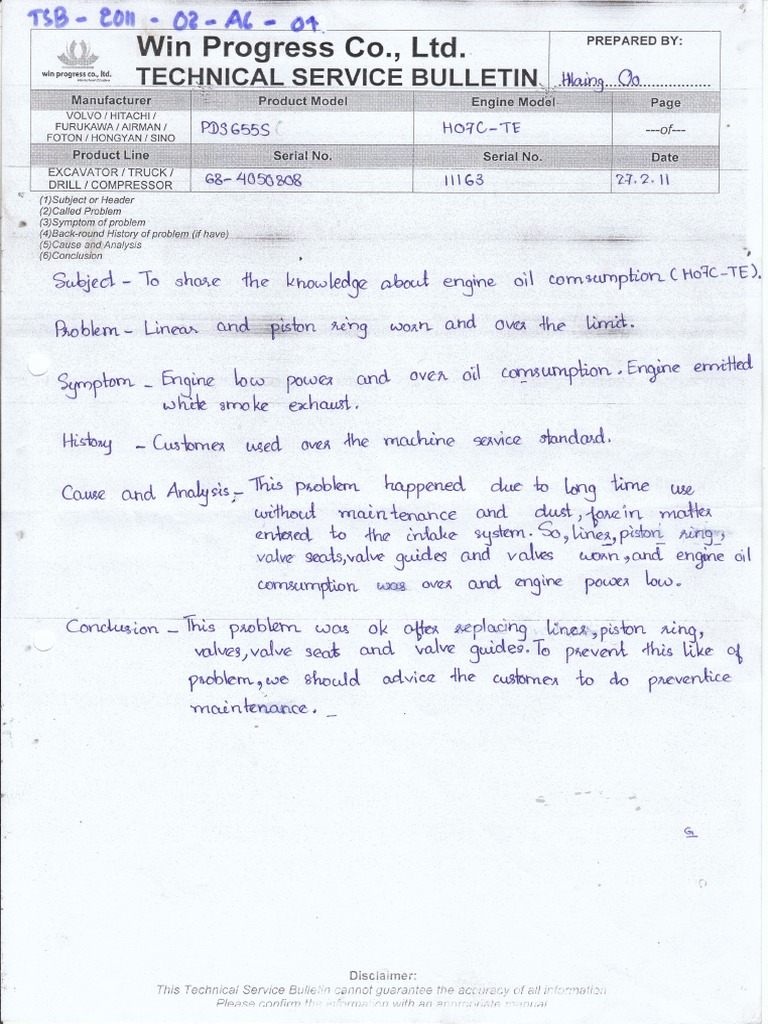 TSB - 2011 - 02 - A6 - 01
Win Progress Co., Ltd.
PREPARED BY:
win progress co., ltd.
TECHNICAL SERVICE BULLETIN
Hlaing Oo
Manufacturer Product Model Engine Model Page
VOLVO / HITACHI /
FURUKAWA / AIRMAN /
FOTON / HONGYAN / SINO
PDS655S HO7C-TE ---of---
Product Line Serial No. Serial No. Date
EXCAVATOR / TRUCK /
DRILL / COMPRESSOR
68-4050808 11163 27.2.11
(1)Subject or Header
(2)Called Problem
(3)Symptom of problem
(4)Back-round History of problem (if have)
(5)Cause and Analysis
(6)Conclusion
Subject - To share the knowledge about engine oil comsumption (HO7C-TE).
Problem - Linear and piston ring worn and over the limit.
Symptom - Engine low power and over oil comsumption. Engine emitted
white smoke exhaust.
History - Customer used over the machine service standard.
Cause and Analysis - This problem happened due to long time use
without maintenance and dust, forein matter
entered to the intake system. So, liner, piston ring,
valve seats, valve guides and valves worn, and engine oil
comsumption was over and engine power low.
Conclusion - This problem was ok after replacing liner, piston ring,
valves, valve seat and valve guides. To prevent this like of
problem, we should advice the customer to do preventice
maintenance.
G
Disclaimer:
This Technical Service Bulletin cannot guarantee the accuracy of all information
Please confirm the information with an appropriate manual